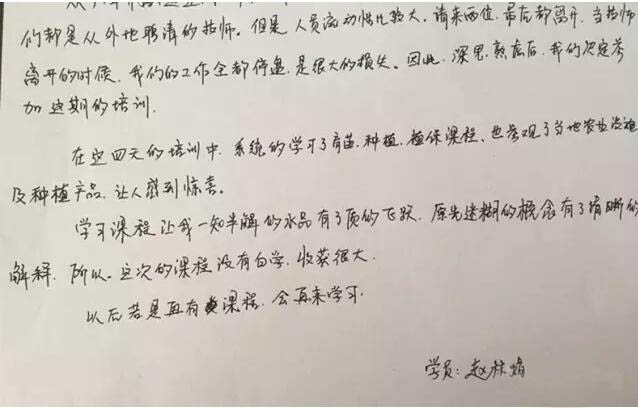 们都是从外地聘请的技师。但是人员流动性比较大。请来两位,最后都离开,当技师
离开的时候,我们的工作全都停盘,是很大的损失。因此,深思熟虑后,我们决定参
加这期的培训.
在这四天的培训中,系统的学习了育苗,种植,植保课程、也参观了当地农业设施
及种植产品,让人感到惊喜。
学习课程让我一知半解的水品有了质的飞跃,原先迷糊的概念有了清晰的
解释,所以、这次的课程没有白学,收获很大.
以后若是再有课程,会再来学习.
学员:赵林娟